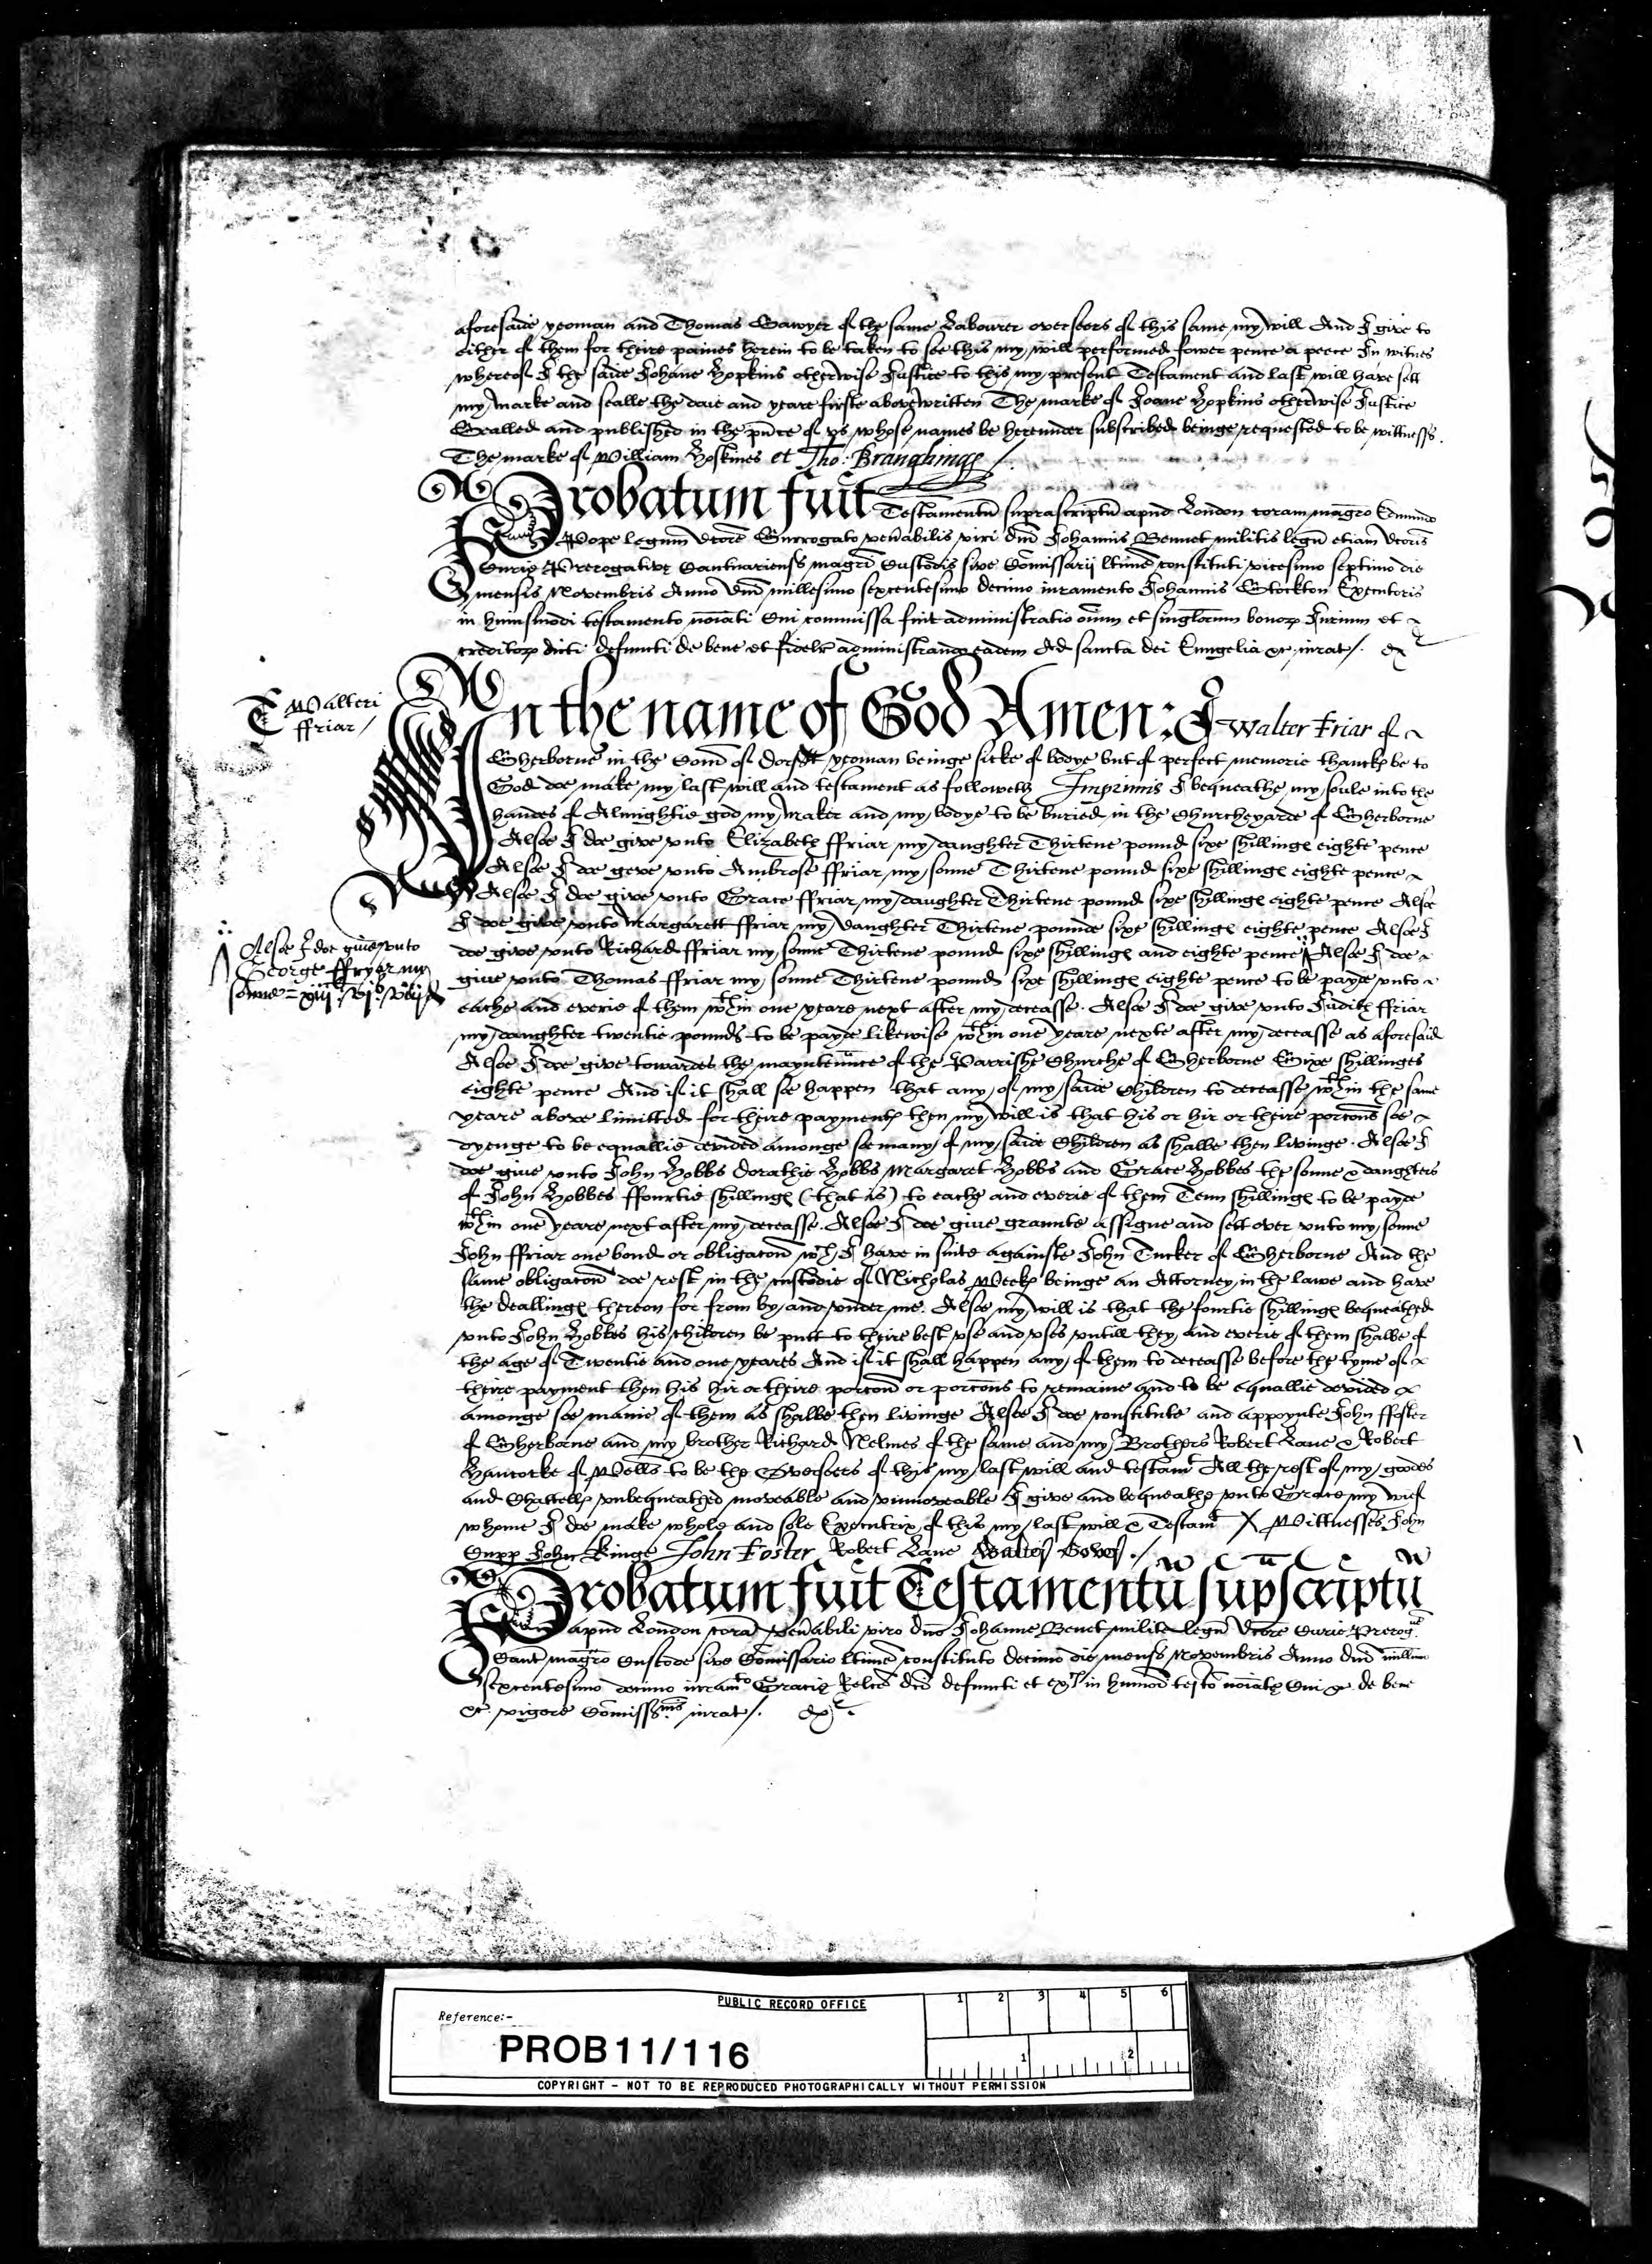 aforesaide yeoman and Thomas Sawyer of the same Labourer overseers of this same my will And I give to
either of them for theire paines herein to be taken to see this my will performed fower pence a peece In witnes
whereof I the saide Johane Hopkins otherwise Justice to this my present Testament and last will have sett
my marke and sealle the daie and yeare firste abovewritten The marke of Joane Hopkins otherwise Justice
Sealled and published in the pñce of vs whose names be herevnder subscribed beinge requested to be wittnesses.
The marke of William Hoskines et Tho: Branghinge /.
Probatum fuit Testamentũ suprascriptũ apud London coram magrõ Edmundo
Pope legum dcõre Surrogato veñabilis viri dñi Johannis Bennet militis legũ etiam dcõris
Curie Prerogative Cantuarienš magrĩ Custodis sive Comissarij ltime constituti vicesimo septimo die
mensis Novembris Anno Dñi millesimo sexcentesimo decimo iuramento Johannis Stockton Executoris
in huiusmodi testamento noĩati Cui commissa fuit administratio oĩum et singlorum bonorp Jurium et
creditorp dicti defuncti de bene et fidelr̃ administrand eadem Ad sancta dei Evngelia &c iurat/. ex
T Walteri
ffriar /
In the name of God Amen: I Walter Friar of
Sherborne in the Com̃ of Dorsett yeoman beinge sicke of bodye but of perfect memorie thanckp be to
God doe make my last will and testament as followeth Imprimis I bequeathe my soule into the
handes of Almightie god my maker and my bodye to be buried in the Churcheyarde of Sherborne
Alsoe I doe give vnto Elizabeth ffriar my daughter Thirtene pound sixe shillinge eighte pence
Alsoe I doe geve vnto Ambrose ffriar my sonne Thirtene pound sixe shillinge eighte pence
Alsoe I doe give vnto Grace ffriar my daughter Thirtene pound sixe shillinge eighte pence Alsoe
I doe give vnto Margarett ffriar my daughter Thirtene pounde sixe shillinge eighte pence Alsoe I
doe give vnto Richard ffriar my sonne Thirtene pound sixe shillinge and eighte pence Alsoe I doe
Alsoe I doe giue vnto
George ffryer my
sonne = xiij vjs viijd
giue vnto Thomas ffriar my sonne Thirtene pound sixe shillinge eighte pence to be payde vnto
eache and everie of them wthin one yeare next after my decease. Alsoe I doe give vnto Judith ffriar
my daughter twentie pounds to be payde likewise wthin one yeare nexte after my deceasse as aforesaid
Alsoe I doe give towardes the mayntenũce of the Parrishe Churche of Sherborne Sixe shillinges
eighte pence And if it shall soe happen that any of my saide Children to deceasse wthin the same
yeare above limitted for theire payment then my will is that his or hir or theire porcons soe
dyenge to be equallie devided amonge soe many of my saide Children as shalbe then livinge. Alsoe I
doe give vnto John Hobbs Dorathie Hobbs Margaret Hobbs and Grace Hobbes the sonne & daughters
of John Hobbes ffourtie shillinge (that is) to eache and everie of them Tenn shillinge to be payde
wthin one yeare next after my deceasse. Alsoe I doe giue graunte assigne and sett over vnto my sonne
John ffriar one bond or obligacon wch I have in suite againste John Tucker of Sherborne And the
same obligacon doe rest in the custodie of Nicholas Meekp beinge an Attorney in the lawe and have
the deallinge thereon for from by and vnder me. Alsoe my will is that the fourtie shillinge bequeathed
vnto John Hobbes his children be putt to theire best vse and vses vntill they and everie of them shalbe of
the age of Twentie and one yeares And if it shall happen any of them to deceasse before the tyme of
theire payment then his hir or theire porcon or porcons to remaine and to be equallie devided
amonge soe manie of them as shalbe then livinge Alsoe I doe constitute and appoynte John ffoster
of Sherborne and my brother Richard Nelmes of the same and my Brothers Robert Lane & Robert
Hancocke of Wells to be the Overseers of this my last will and testamt All the rest of my goodes
and Chattellp vnbequeathed moveable and vnmoveable I give and bequeathe vnto Grace my wief
whome I doe make whole and sole Executrix of this my last will & Testamt X Wittnesses John
Cupp John Kinge John Foster Robert Lane Walter Gover./
Probatum fuit Testamentũ supscriptũ
apud London corã veñabili viro dño Johanne Benet milite legũ dcõre Curie Prerogue
Cant magrõ Custode sive Comissario ltime constituto decimo die mensš Novembris Anno dñi millim̃o
sexcentesimo decimo iuramto Gracie Relcẽ dcĩ defuncti et exls in humoi testo noĩatp Cui &c de bene
&c vigore Comissšnis iurat/. ex
PUBLIC RECORD OFFICE
Reference:-
PROB 11/116
1 2 3 4 5 6
1 2
COPYRIGHT - NOT TO BE REPRODUCED PHOTOGRAPHICALLY WITHOUT PERMISSION